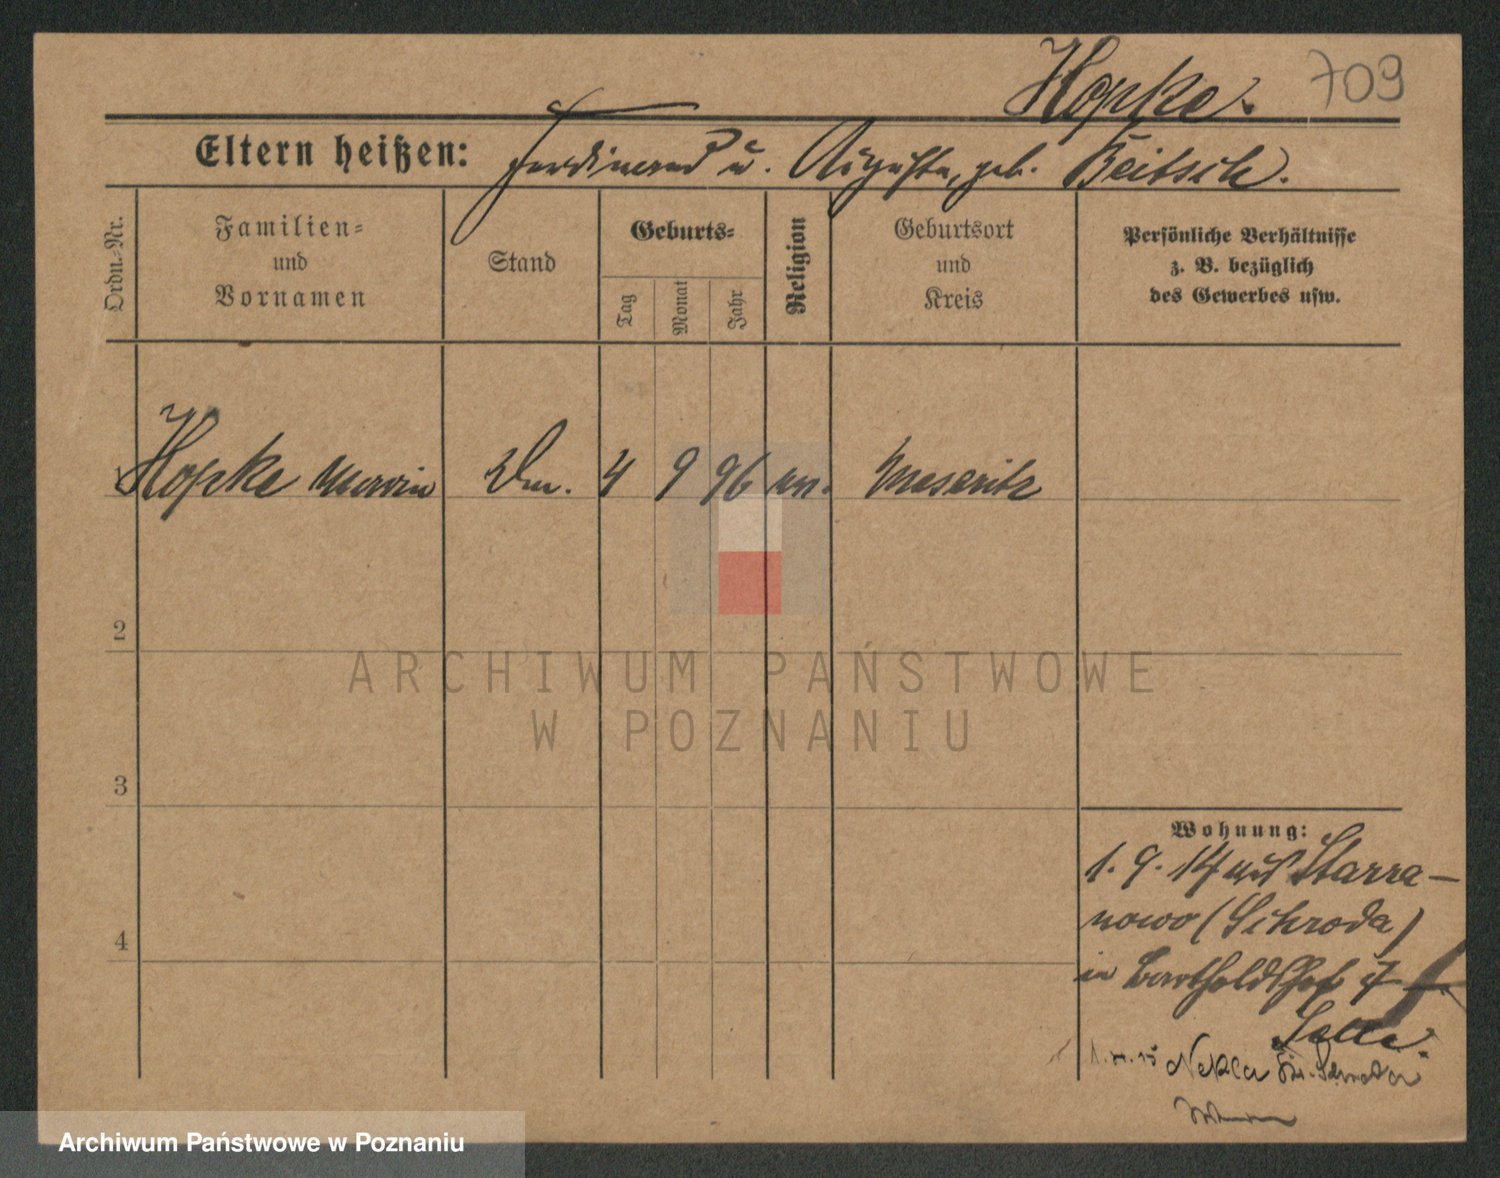 Hopke. 709
Eltern heißen: Ferdinand u. Auguste, geb. Beitsch.
Ordn.-Nr.
Familien-
und
Vornamen
Stand
Geburts-
Tag
Monat
Jahr
Religion
Geburtsort
und
Kreis
Persönliche Verhältnisse
z. B. bezüglich
des Gewerbes usw.
1 Hopke 4 9 96 Meseritz
2
3
4
ARCHIWUM PAŃSTWOWE
W POZNANIU
Wohnung:
1. 9. 14 Starra-
nowo (Schroda)
in
Nekla Kr. Schroda
Archiwum Państwowe w Poznaniu